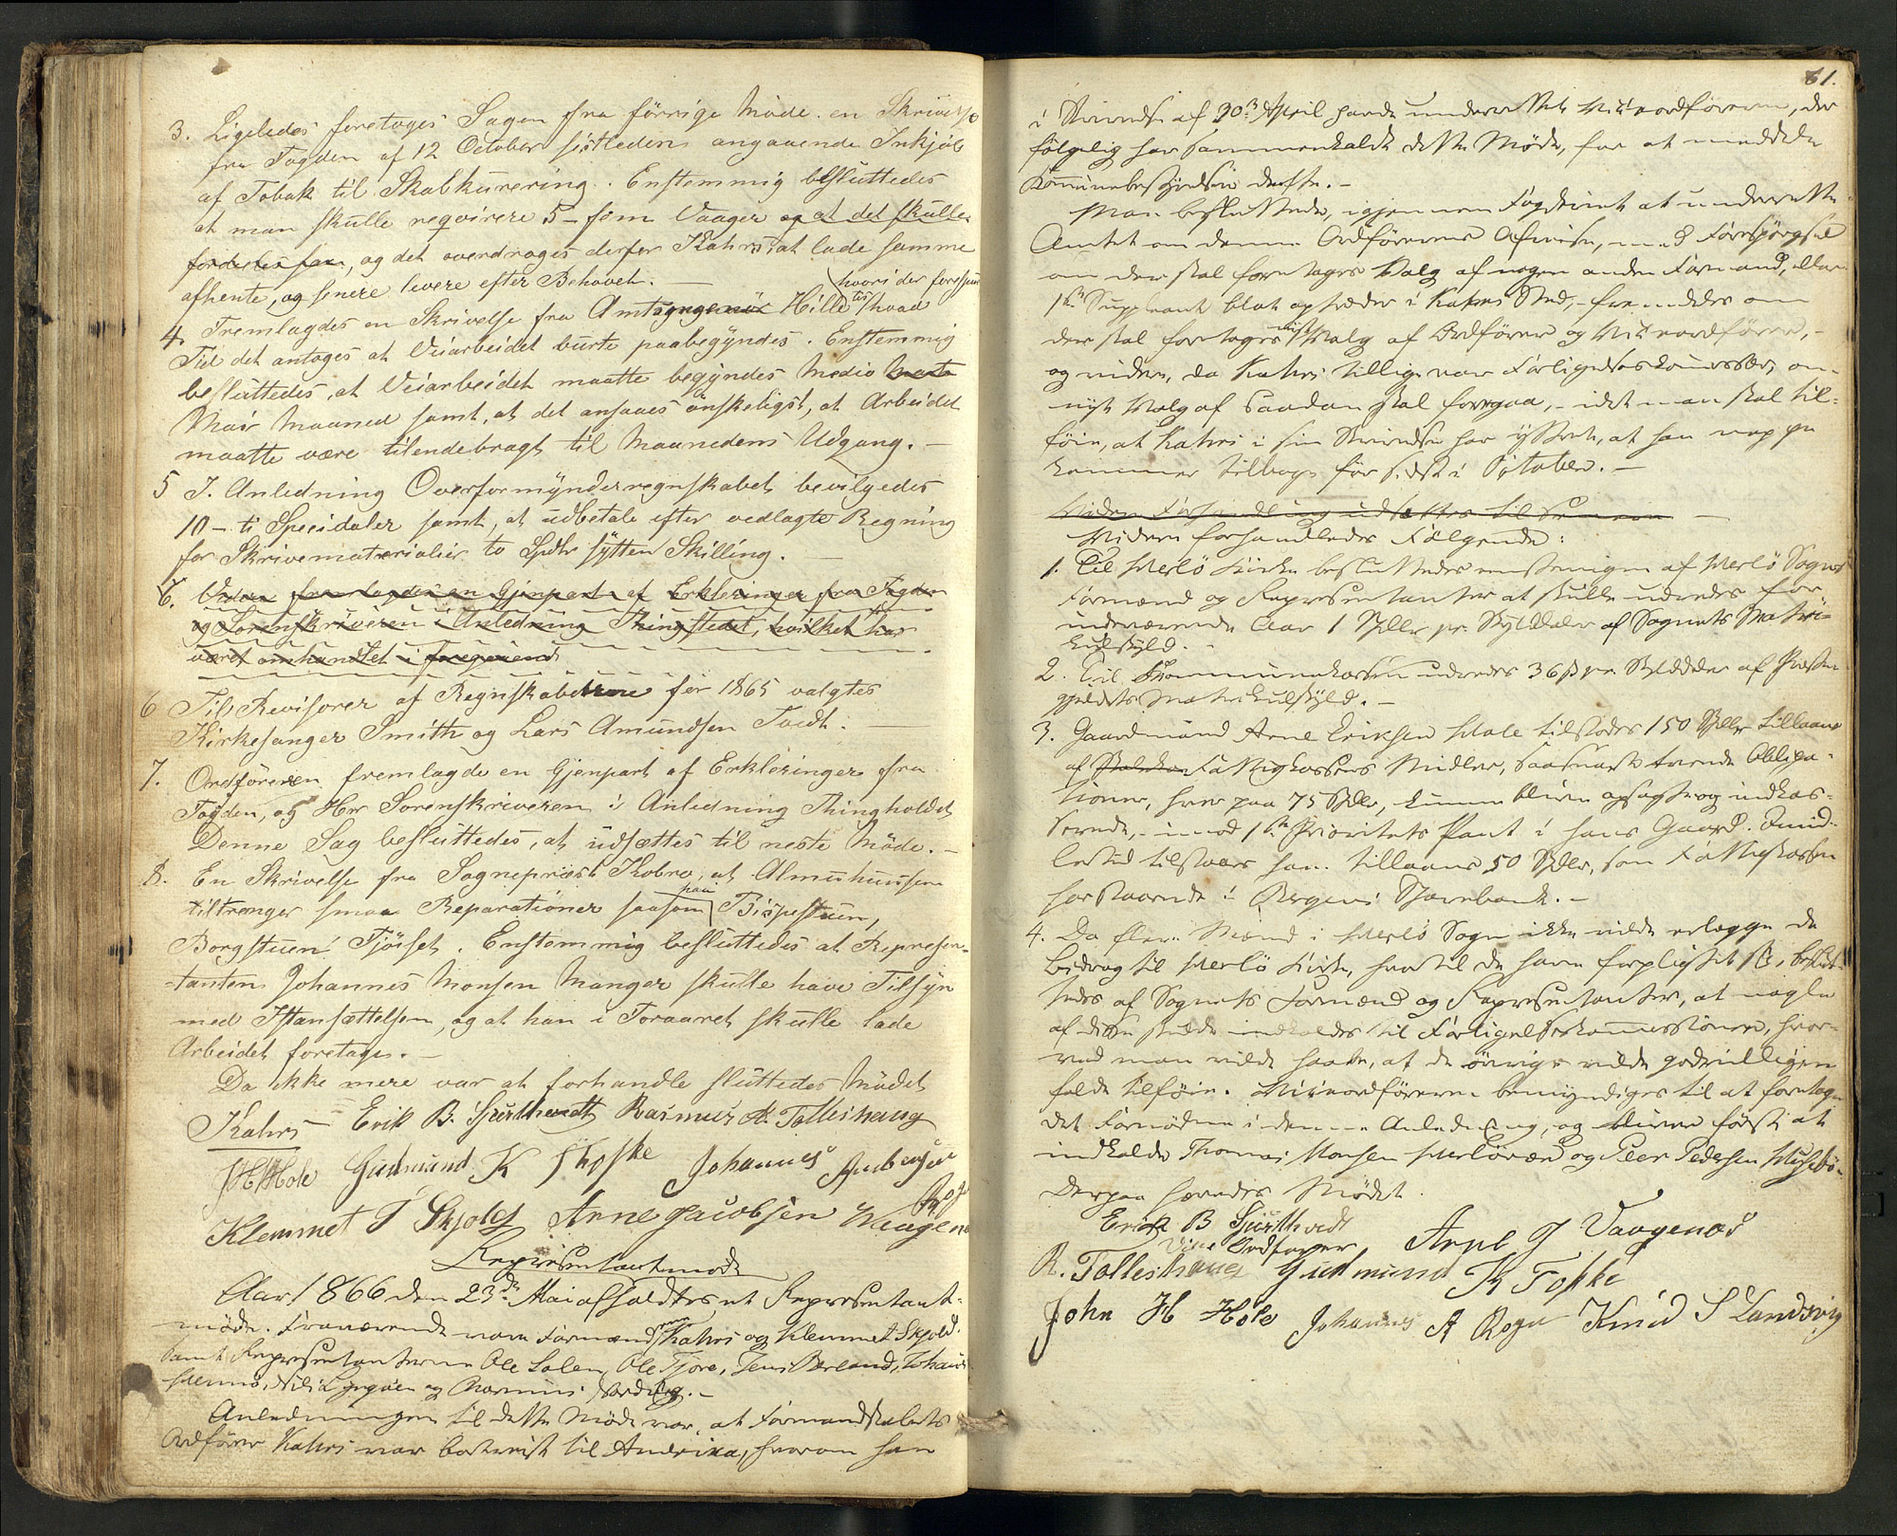 3. Ligeledes foretoges Sagen fra förrige Möde. en Skrivelse
fra Fogden af 12 October sistleden angaaende Inkjöb
af Tobak til Skabkurering. Enstemmig besluttedes
at man skulle reqvirere 5 - fem Vaager og at det skulle
, og det overdroges derfor Kahrs at lade samme
afhente, og senere levere efter Behovet. -
4. Fremlagdes en Skrivelse fra Amtsingeniör Hille hvori der forespurgtes til hvad
Tid det antoges at Veiarbeidet burte paabegyndes. Enstemmig
besluttedes, at Veiarbeidet maatte begyndes Medio
Mair Maaned samt, at det ansaaes önskeligst, at Arbeidet
maatte være tilendebragt til Maanedens Udgang. -
5 I. Anledning Overformynderregnskabet bevilgedes
10 - ti Speeidaler samt, at udbetale efter vedlagte Regning
for Skrivematerialier to Spdlr sytten Skilling. -
6. fremlagdes en Gjenpart af Erkleringer fra Fogden
og Sorenskriveren i Anledning Thingstedet, hvilket har
været omhandlet i foregaaend
6 Til Revisorer af Regnskaberne for 1865 valgtes
Kirkesanger Smith og Lars Amundsen Tvedt. -
7. Ordföreren fremlagde en Gjenpart af Erkleringer fra
Fogden, og Hr Sorenskriveren i Anledning Thingholdet
Denne Sag besluttedes, at udsættes til neste Möde. -
8. En Skrivelse fra Sogneprest Kobro, at Almuhuusene
tiltrenger smaa Reparationer saasom paa Bispestuen,
Borgstuen Fjöset. Enstemmig besluttedes at Represen-
tanten Johannes Monsen Manger skulle have Tilsyn
med Istansættelsen, og at han i Foraaret skulle lade
Arbeidet foretage. -
Da ikke mere var at forhandle sluttedes Mödet
Kahrs Erik B. Sjurthvedt Rasmus A. Tolleshaug
JHHole Gudmund K Topske Johannes Andersen Roga
Klemmet J Skjold Arne Jacobsen Vaagenes
Representantmöde
Aar 1866 den 23de Mai afholdtes et Representant-
möde. Fraværende vare Formænd Kahrs og Klemmet Skjold.
samt Representanterne Ole Lolen, Ole Fjore, Jens Berland, Johannes
Anledningen til dette Möde var, at Formandskabets
Ordförer Kahrs var bortreist til Amerika, hvorom han
61.
i Skrivelse af 30te April havde underrettet Viceordföreren, der
fölgelig har sammenkaldt dette Möde, for at meddele
Communebestyrelsen dette. -
Man besluttede, igjennem Fogderiet at underrette
Amtet om denne Ordförerens Afreise, med Forespörgsel
om der skal foretages Valg af nogen anden Formand, eller
1ste Suppleant blot optræder i Kahrs Sted, - fremdeles om
der skal foretages nyt Valg af Ordförer og Viceordförer, -
og videre, da Kahrs tillige var Forligelseskommissær, om
nyt Valg af saadan skal foregaa, - idet man skal til-
föie, at Kahrs i sin Skrivelse har yttret, at han neppe
kommer tilbage för sidst i October. -
Videre Forhandling udsættes til
Videre forhandledes Fölgende:
1. Til Herlö Kirke besluttedes enstemigen af Herlö Sogns
Formænd og Representanter at skulle udredes for
indeværende Aar 1 Skill. pr. Skylddaler af Sognets Matri-
kulskyld. -
2. Til Kommunekassen udredes 36 ß pr Skylddaler af Præste-
gjeldets Matrikulskyld. -
3. Gaardmand Arne Eriksen Hole tilstodes 150 Spdlr tillaans
af Fattigkassens Midler, saasnart tvende Obliga-
tioner, hver paa 75 Spdlr, kunne blive opsagte og indkas-
serede, - imod 1ste Prioritets Pant i hans Gaard. Imid-
lertid tilstaaes han tillaans 50 Spdlr, som Fattigkassen
har staaende i Bergens Sparebank. -
4. Da flere Mænd i Herlö Sogn ikke vilde erlægge de
Bidrag til Herlö Kirke, hvortil de have forpligtet sig, beslut-
tedes af Sognets Formænd og Representanter, at nogle
af disse skulde indkaldes til Forligelseskommissionen, hvor-
ved man vilde haabe, at de övrige vilde godvilligen
falde tilföie. Viceordföreren bemyndiges til at foretage
det Fornödne i denne Anledning, og bliver först at
indkalde Thomas Monsen Herlövær og Peer Pedersen
Derpaa hævedes Mödet.
Erik B Sjurthvedt Arne J Vaagenes
Vice Ordförer
R. Tolleshaug Gudmund K Topske
John H Hole Johannes A Roga Knud S Landsvig